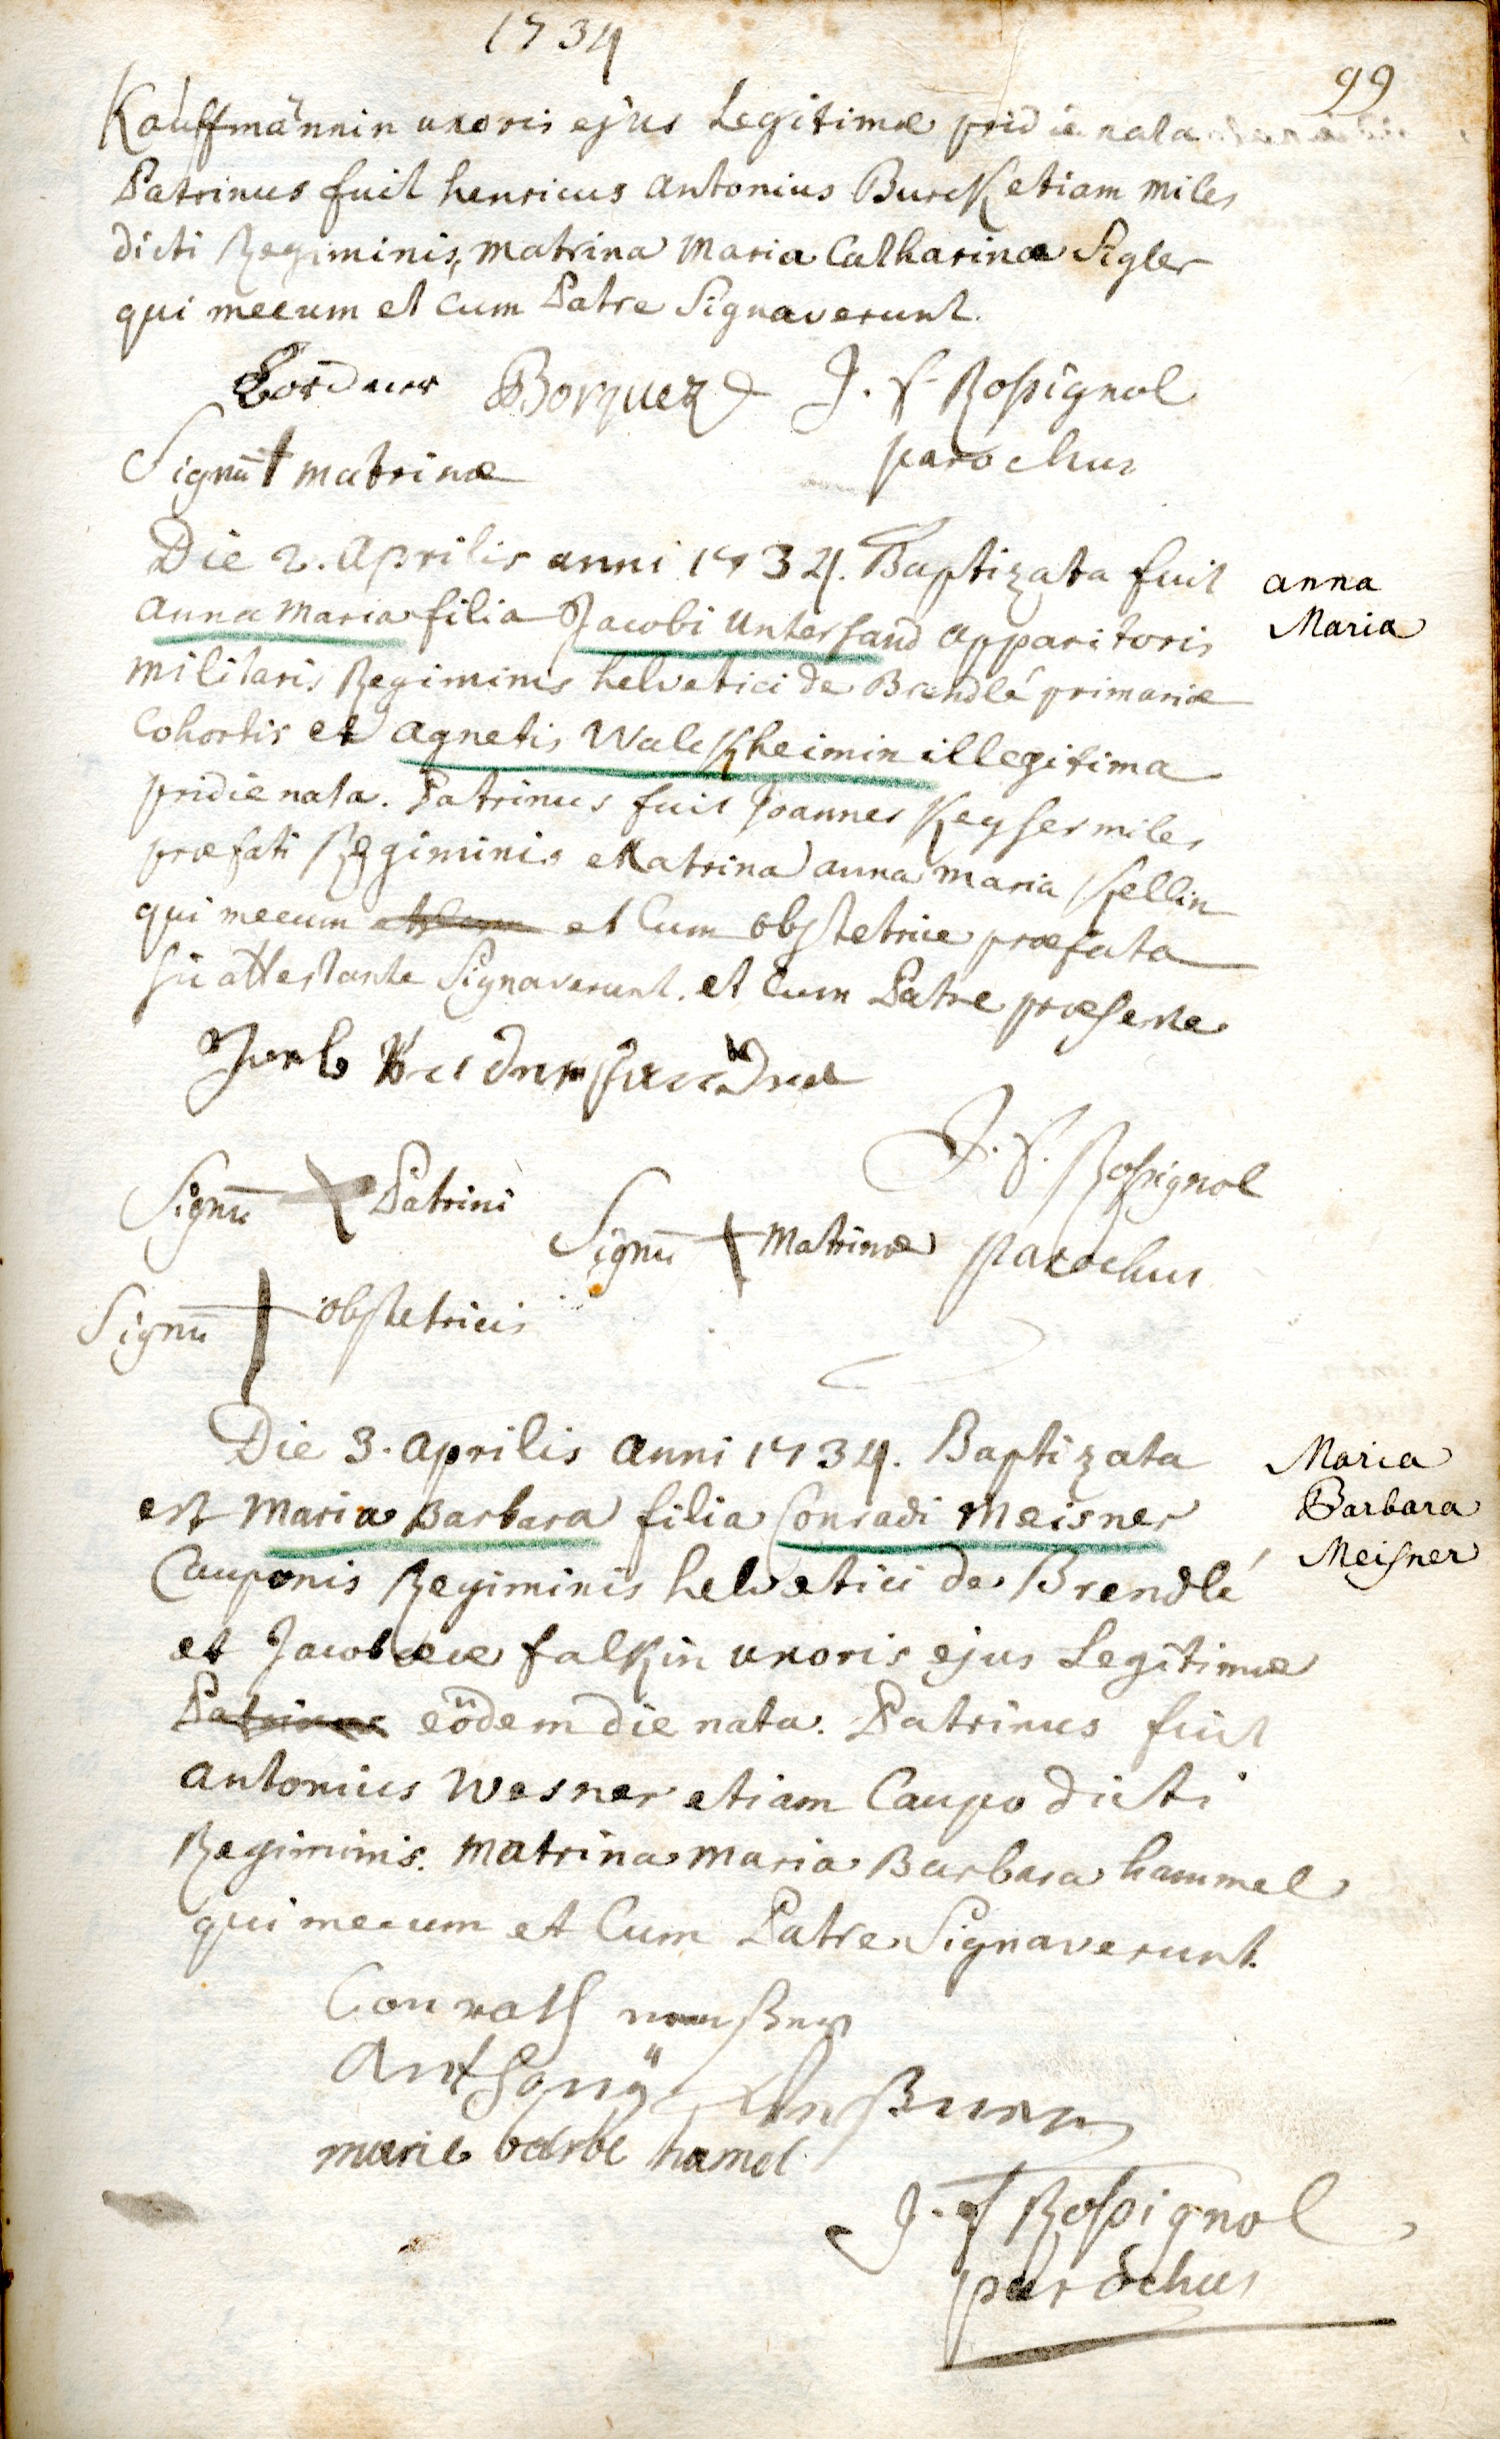 1734
99
Kauffmännin uxoris ejus Legitimæ pridie nata
Patrinus fuit henricus antonius Burck etiam miles
dicti Regiminis, matrina Maria Catharina Sigler
qui mecum et cum Patre Signaverunt.
J. f. Rossignol
Signū + matrinæ
parochus
Die 2. aprilis anni 1734. Baptizata fuit
anna Maria
anna maria filia Jacobi Untersand apparitoris
militaris Regiminis helvetici de Brendlé primariæ
Cohortis et agnetis Walckheimin illegitima
pridie nata. Patrinus fuit Joannes Keyser miles
præfati Regiminis Matrina anna maria Fellin
qui mecum et Cum obstetrice præfata
sic attestante Signaverunt. et cum Patre præsente
J. f. Rossignol
Signū + Patrini
Signū + Matrinæ parochus
Signū + obstetricis
Die 3. aprilis anni 1734. Baptizata
est maria Barbara filia Conradi Meisner
Maria Barbara Meisner
Cauponis Regiminis helvetici de Brendlé
et Jacobææ falkin uxoris ejus Legitimæ
Patrinus eödem die nata. Patrinus fuit
antonius Wesner etiam Caupo dicti
Regiminis. matrina maria Barbara hammel
qui mecum et Cum Patre Signaverunt.
Conrath
Anthonÿ
marie barbe hamel
J. f Rossignol
parochus